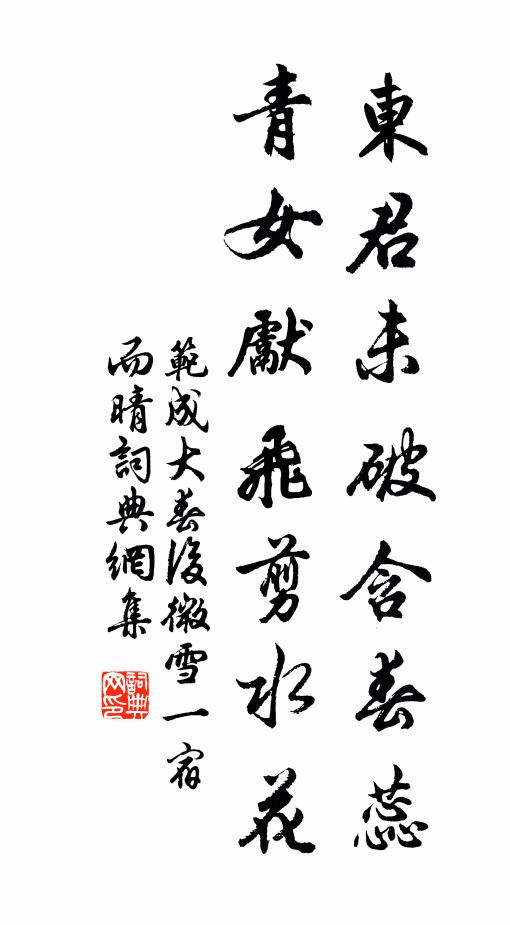 東君未破含春蕊
青女獻飛剪水花
範成大春後微雪一宿
而晴詞典網集
詞典网印